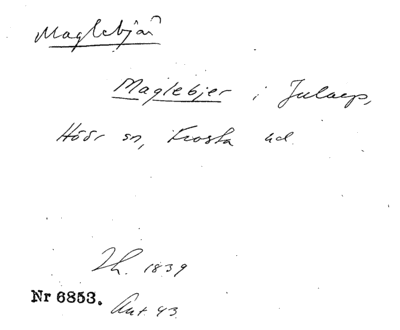 Maglebjär
Maglebjer i Jularp,
Höör sn, Frosta hd
Th. 1839
Nr 6853. Ant 43